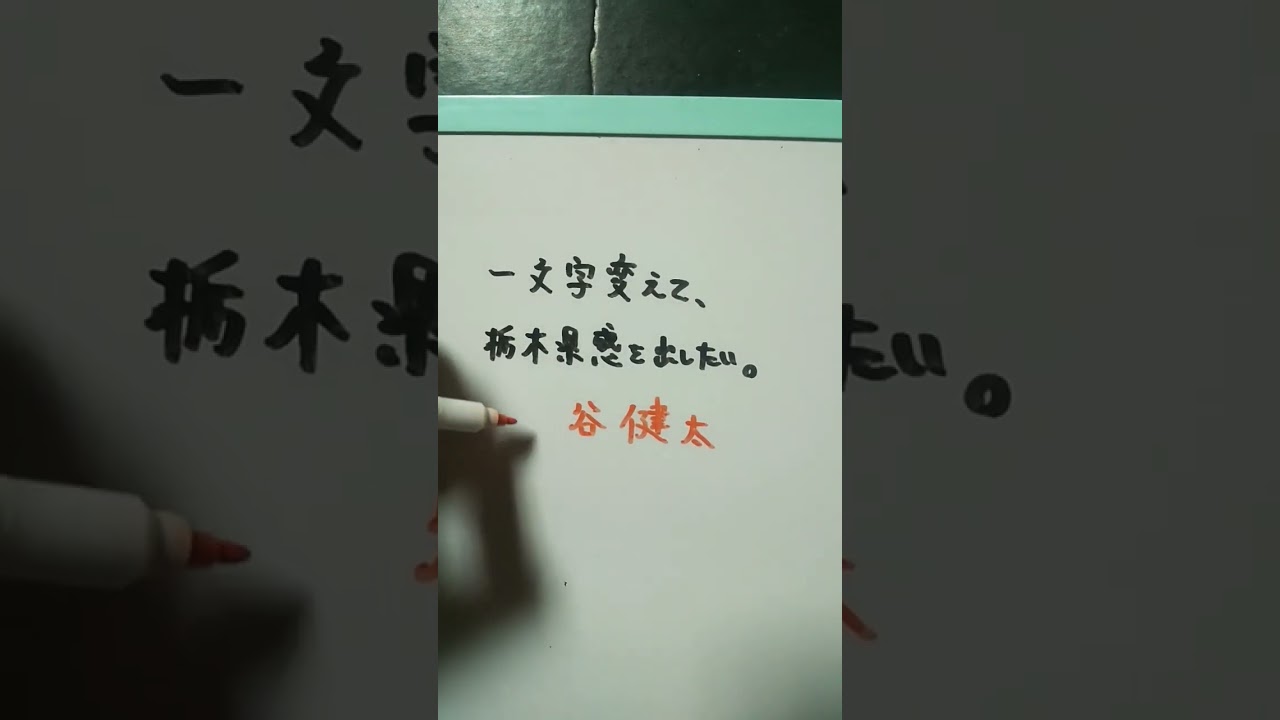 一文字変えて、
栃木県感を出したい。
谷健太